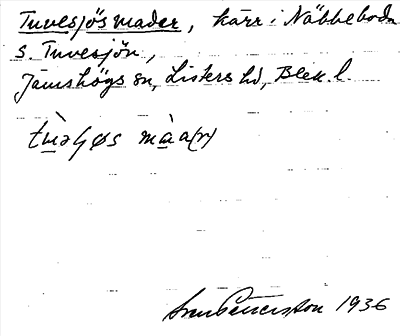 Tuvesjös mader, kärr i Näbbeboda
s. Tuvesjön,
Jämshögs sn, Listers hd, Blek. l.
Sven Petersson 1936